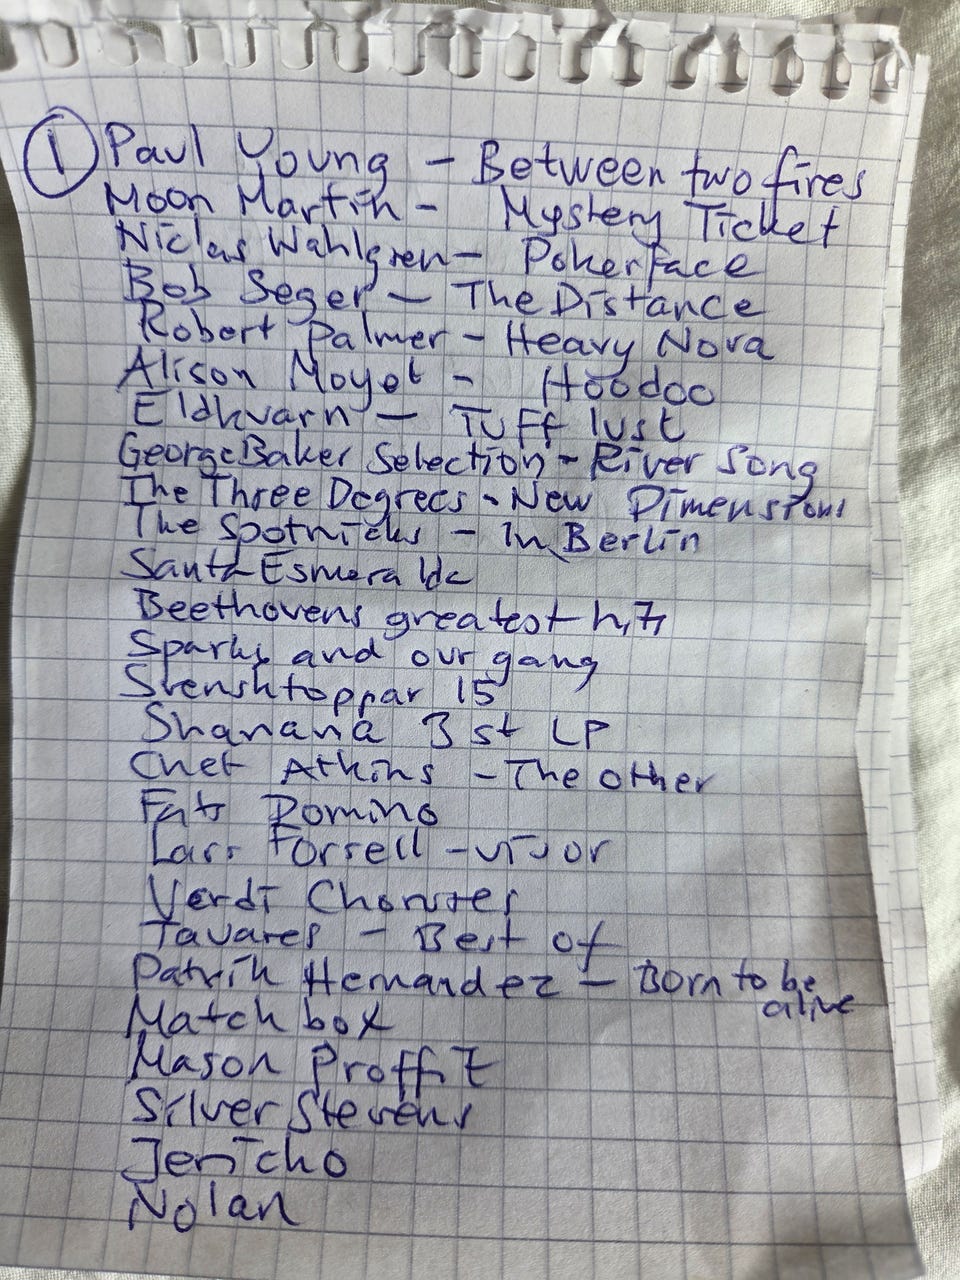 ① Paul Young - Between two fires
Moon Martin - Mystery Ticket
Niclas Wahlgren - Pokerface
Bob Seger - The Distance
Robert Palmer - Heavy Nova
Alison Moyet - Hoodoo
Eldkvarn - Tuff lust
George Baker Selection - River Song
The Three Degrees - New Dimensions
The Spotnicks - In Berlin
Santa Esmeralda
Beethovens greatest hits
Sparks and our gang
Svensktoppar 15
Shanana 3 st LP
Chet Atkins - The other
Fats Domino
Lars Forssell - visor
Verdi Choruses
Tavares - Best of
Patrik Hernandez - Born to be
alive
Matchbox
Mason Proffit
Silver Stevens
Jericho
Nolan